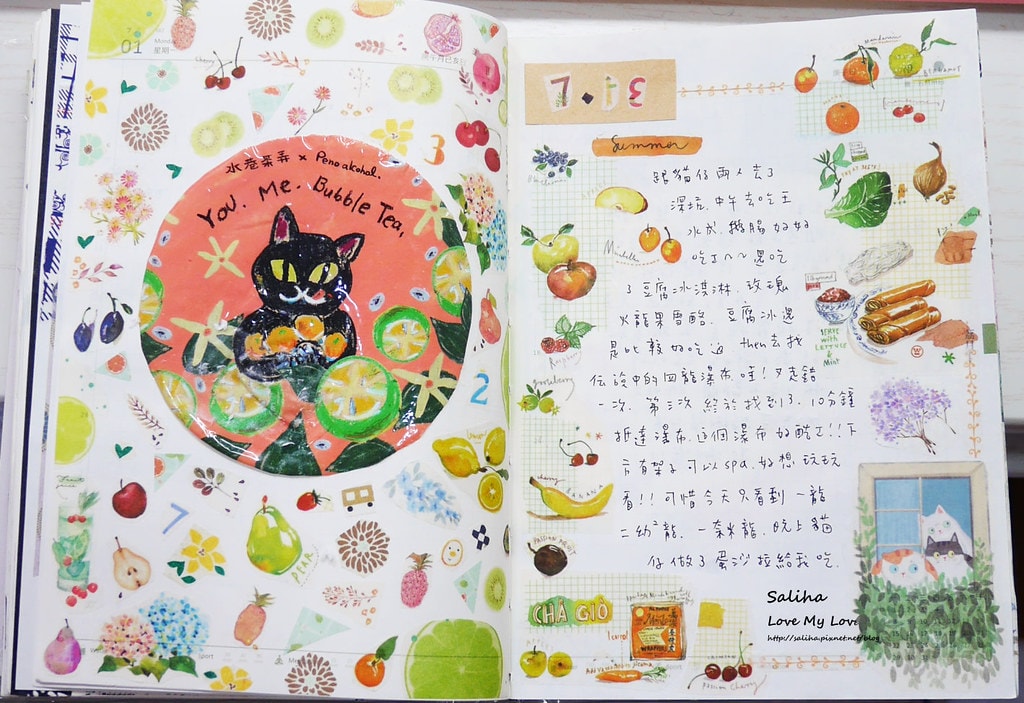 01
星期一
Cherry
水巷茶弄 × Penoakohol.
You. Me. Bubble Tea,
3
2
7
PEAR
7.13
Summer
跟貓仔兩人去了
深坑,中午去吃王
水成,鵝腸好好
吃ㄛ~~還吃
了豆腐冰淇淋,玫瑰
火龍果雪酪,豆腐冰還
是比較好吃這,then去找
傳說中的四龍瀑布,哇!又走錯
一次,第二次終於找到了,10分鐘
抵達瀑布,這個瀑布好酷ㄛ!!下
方有架子可以spa,好想玩玩
看!!可惜今天只看到一龍
二幼龍,一奈米龍,晚上貓
仔做了蛋沙拉給我吃.
Mandarin
Raspberry
gooseberry
cherry
BANANA
PASSION FRUIT
SERVE
with
LETTUCE
& Mint
CHẢ GIÒ
WRAPPERS
Saliha
Love My Love
http://saliha.pixnet.net/blog